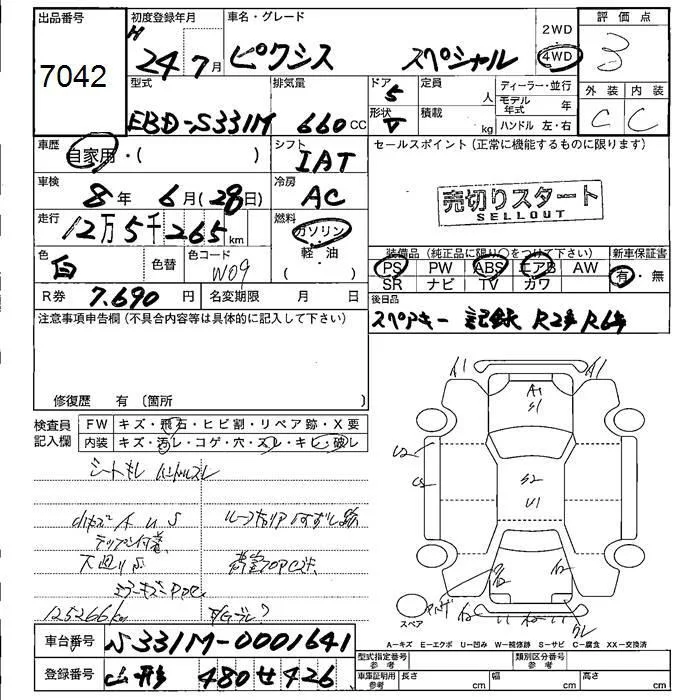 出品番号
7042
初度登録年月
H 24年 7月
車名・グレード
ピクシス スペシャル
2WD
・
4WD
評価点
3
外装 内装
C C
型式
EBD-S331M
排気量
660 CC
ドア
5
形状
V
定員
人
積載
kg
ディーラー・並行
モデル年式 年
ハンドル 左・右
車歴
自家用・( )
シフト
IAT
セールスポイント (正常に機能するものに限ります)
売切りスタート
SELLOUT
車検
8年 6月(28日)
冷房
AC
走行
12万5千265km
燃料
ガソリン
・
軽・油
色
白
色替
色コード
W09
装備品 (純正品に限り○をつけて下さい)
PS PW ABS エアB AW
SR ナビ TV カワ
新車保証書
有・無
R券 7.690 円
名変期限 月 日
後日品
スペアキー 記録 R2年 R6年
注意事項申告欄 (不具合内容等は具体的に記入して下さい)
修復歴 有 (箇所
検査員
記入欄
FW キズ・飛石・ヒビ割・リペア跡・X要
内装 キズ・汚レ・コゲ・穴・スレ・キレ・破レ
シートキレ ハンドルスレ
小キズ A U S
ラップ付着
下廻りS
125266km
車台番号 S331M-0001641
登録番号 山形 480 せ 426
A1
A1
A1
S1
U2
S2
U1
スペア
A-キズ E-エクボ U-凹み W-補修跡 S-サビ C-腐食 XX-交換済
型式指定番号
参考
類別区分番号
参考
車庫証明用
参考
長さ cm
幅 cm
高さ cm